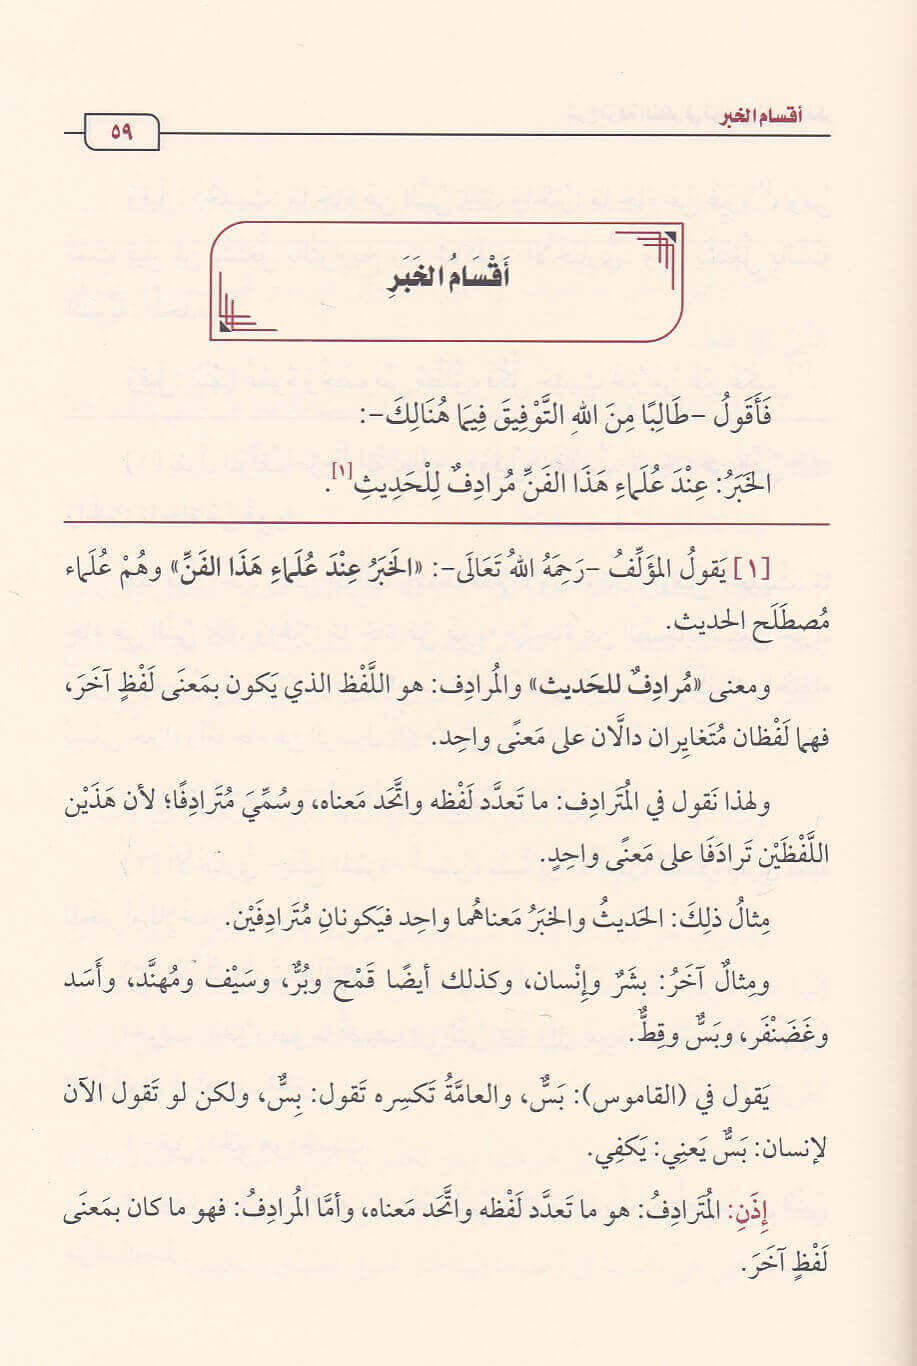 أقسام الخبر
٥٩
أَقْسَامُ الخَبَرِ
فَأَقُولُ –طَالِبًا مِنَ اللهِ التَّوْفِيقَ فِيمَا هُنَالِكَ–:
الخَبَرُ: عِنْدَ عُلَمَاءِ هَذَا الفَنِّ مُرَادِفٌ لِلْحَدِيثِ[١].
[١] يَقولُ المؤلِّفُ –رَحِمَهُ اللهُ تَعَالَى–: «الخَبَرُ عِنْدَ عُلَمَاءِ هَذَا الفَنِّ» وهُمْ عُلَماء
مُصطَلَح الحديث.
ومعنى «مُرادِفٌ للحَديث» والمُرادِف: هو اللَّفْظ الذي يَكون بمَعنَى لَفْظٍ آخَرَ،
فهما لَفْظان مُتَغايِران دالَّان على مَعنًى واحِد.
ولهذا نَقول في المُتَرادِف: ما تَعدَّد لَفْظه واتَّحَد مَعناه، وسُمِّيَ مُتَرادِفًا؛ لأن هَذَيْن
اللَّفْظَيْن تَرادَفَا على مَعنًى واحِدٍ.
مِثالُ ذلِكَ: الحَديثُ والخبَرُ مَعناهُما واحِد فيَكونانِ مُتَرادِفَيْن.
ومِثالٌ آخَرُ: بشَرٌ وإِنْسان، وكذلك أيضًا قَمْح وبُرٌّ، وسَيْف ومُهنَّد، وأَسَد
وغَضَنْفَر، وبَسٌّ وقِطٌّ.
يَقول في (القاموس): بَسٌّ، والعامَّةُ تَكسِره تَقول: بِسٌّ، ولكن لو تَقول الآن
لإنسان: بَسٌّ يَعنِي: يَكفِي.
إِذَنِ: المُتَرادِفُ: هو ما تَعدَّد لَفْظه واتَّحَد مَعناه، وأمَّا المُرادِفُ: فهو ما كان بمَعنَى
لَفْظٍ آخَرَ.